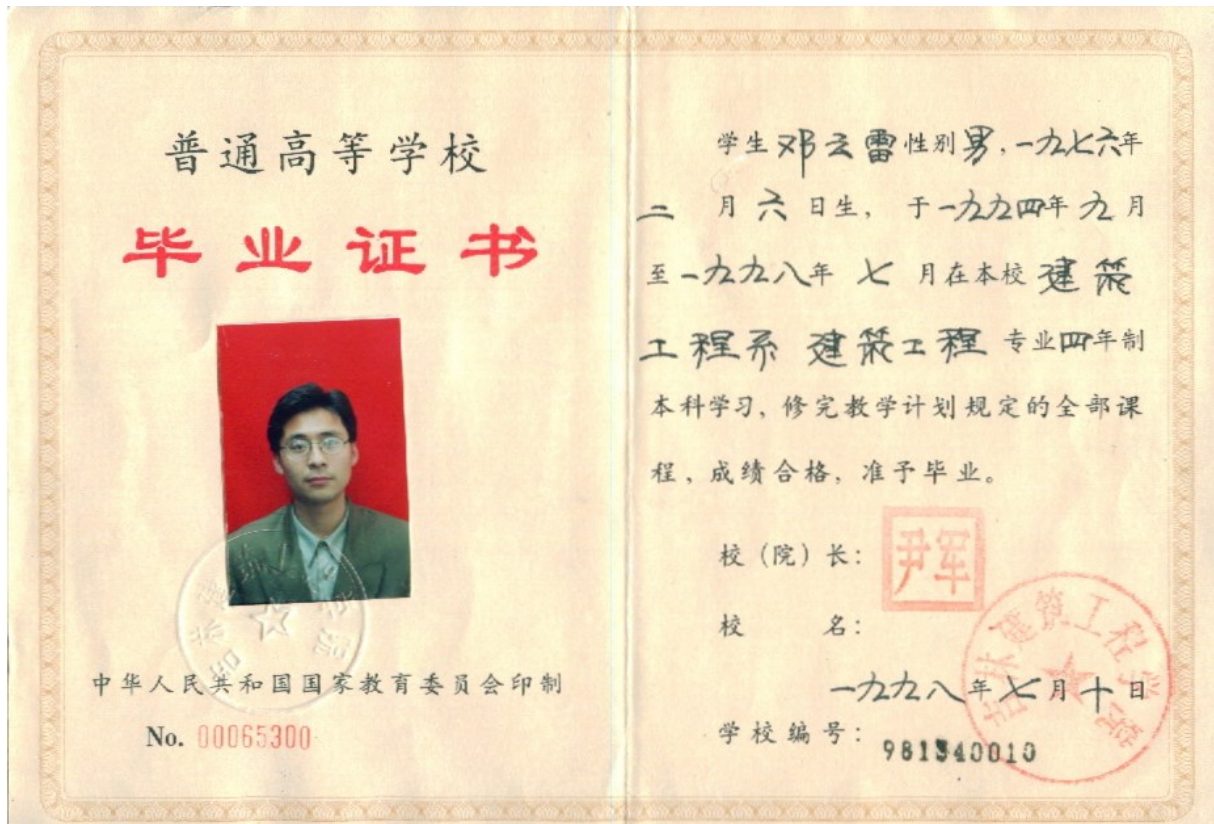 普通高等学校
毕业证书
中华人民共和国国家教育委员会印制
No. 00065300
学生邓云雷性别男,一九七六年
二月六日生, 于一九九四年九月
至一九九八年七月在本校建筑
工程系建筑工程专业四年制
本科学习, 修完教学计划规定的全部课
程, 成绩合格, 准予毕业。
校(院)长: 尹军
校名:
吉林建筑工程学院
一九九八年七月十日
学校编号: 981340010